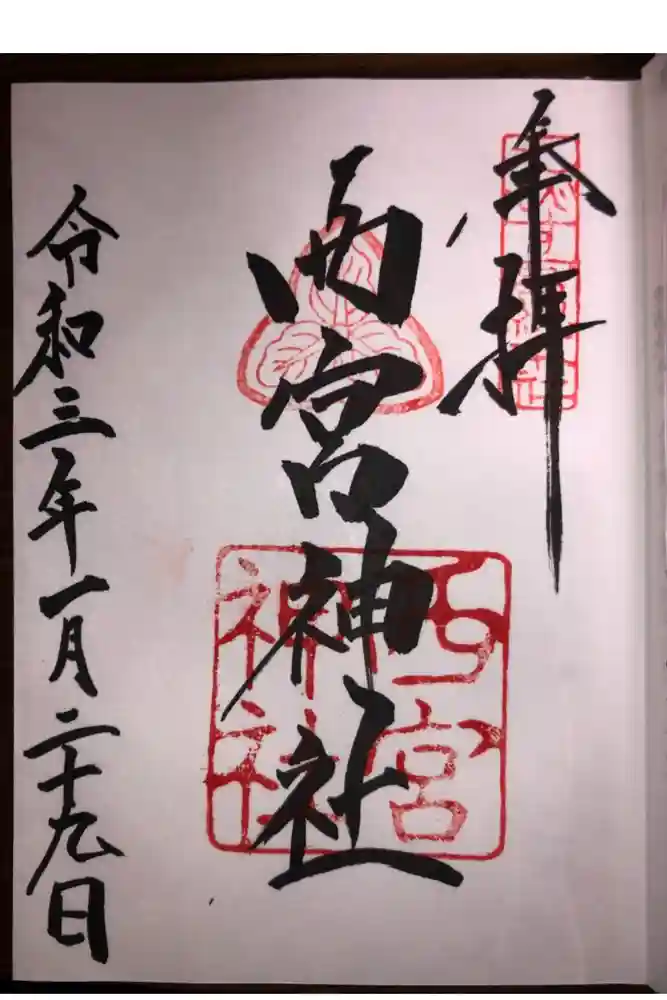 奉拝
西宮神社
西宮
神社
令和三年一月二十九日